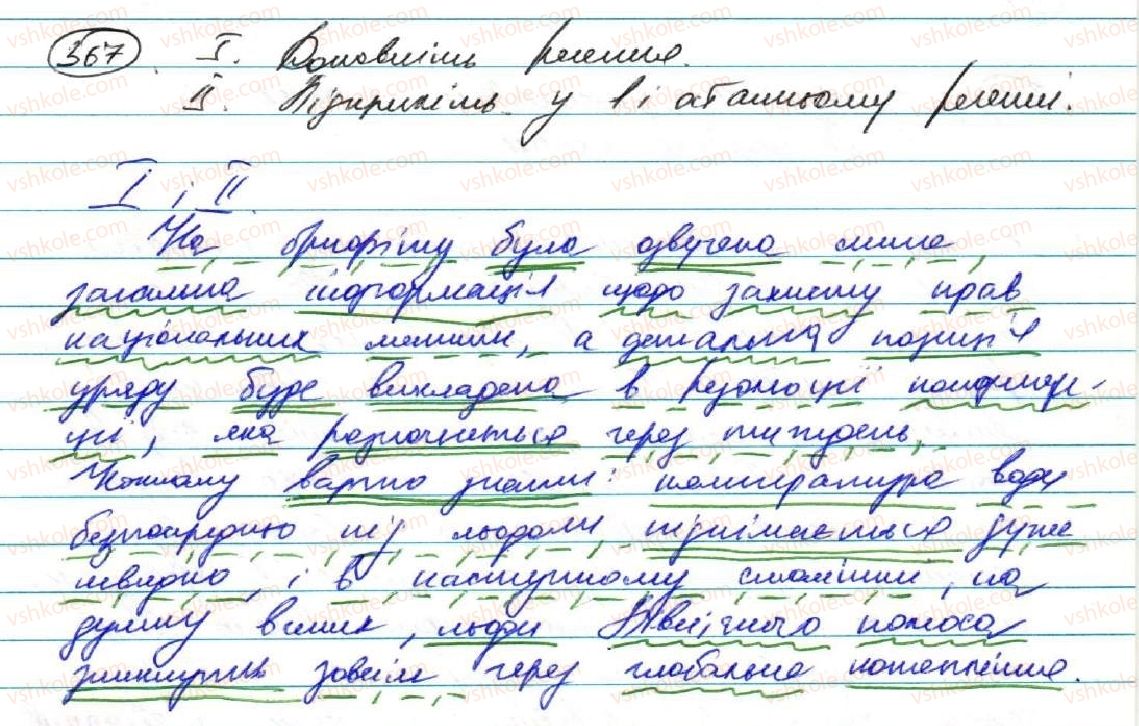 367. I. Доповніть речення.
II. Підкресліть у 1 і останньому реченні.
I і II.
На брифінгу була озвучена лише
загальна інформація щодо захисту прав
національних меншин, а детальна позиція
уряду буде викладена в резолюції конферен-
ції, яка розпочнеться через тиждень.
Кожному варто знати: температура води
безпосередньо під льодом піднімається дуже
швидко, і в наступному столітті, на
думку вчених, льоди Північного полюса
зникнуть зовсім через глобальне потепління.